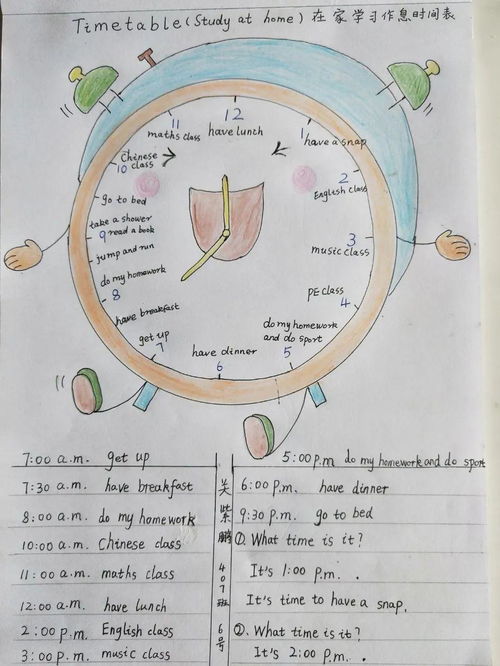 Timetable(Study at home) 在家学习作息时间表
12
have lunch
11
maths class
1
have a snap
Chinese
10 class
2
English class
go to bed
take a shower
9 read a book
jump and run
3
music class
do my homework
8
PE class
4
have breakfast
do my homework
and do sport
5
get up
7
have dinner
6
7:00 a.m. get up
7:30 a.m. have breakfast
8:00 a.m. do my homework
10:00 a.m. Chinese class
11:00 a.m. maths class
12:00 a.m. have lunch
2:00 p.m. English class
3:00 p.m. music class
紫鹏
407班
6号
5:00 p.m. do my homework and do sport
6:00 p.m. have dinner
9:30 p.m. go to bed
①. What time is it?
It's 1:00 p.m. .
It's time to have a snap.
②. What time is it?
It's 2:00 p.m. .